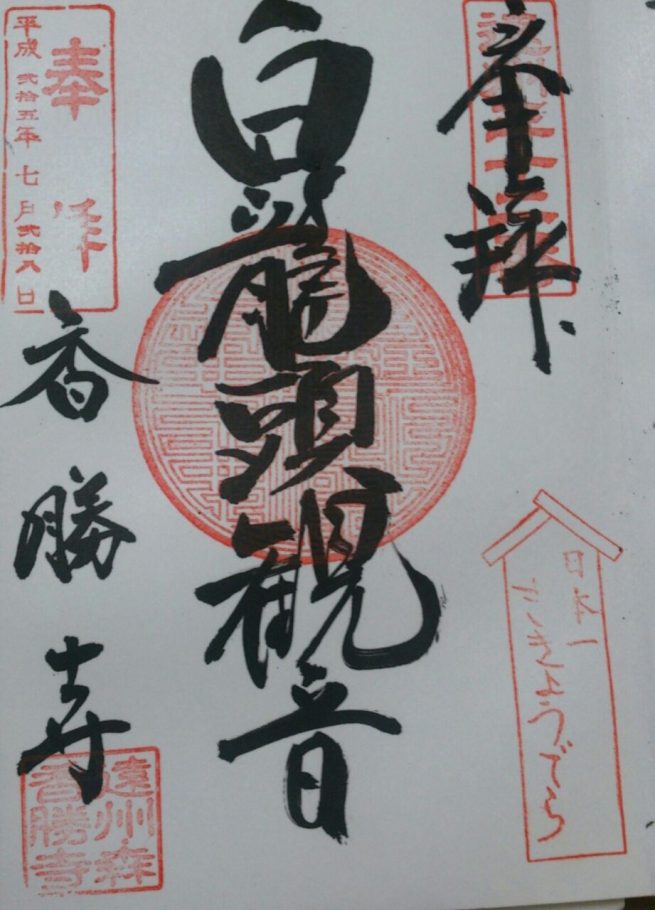 奉拝
白龍頭観音
奉拝
平成弐拾五年七月弐拾八日
香勝寺
遠州森
香勝寺
日本一
ききょうでら